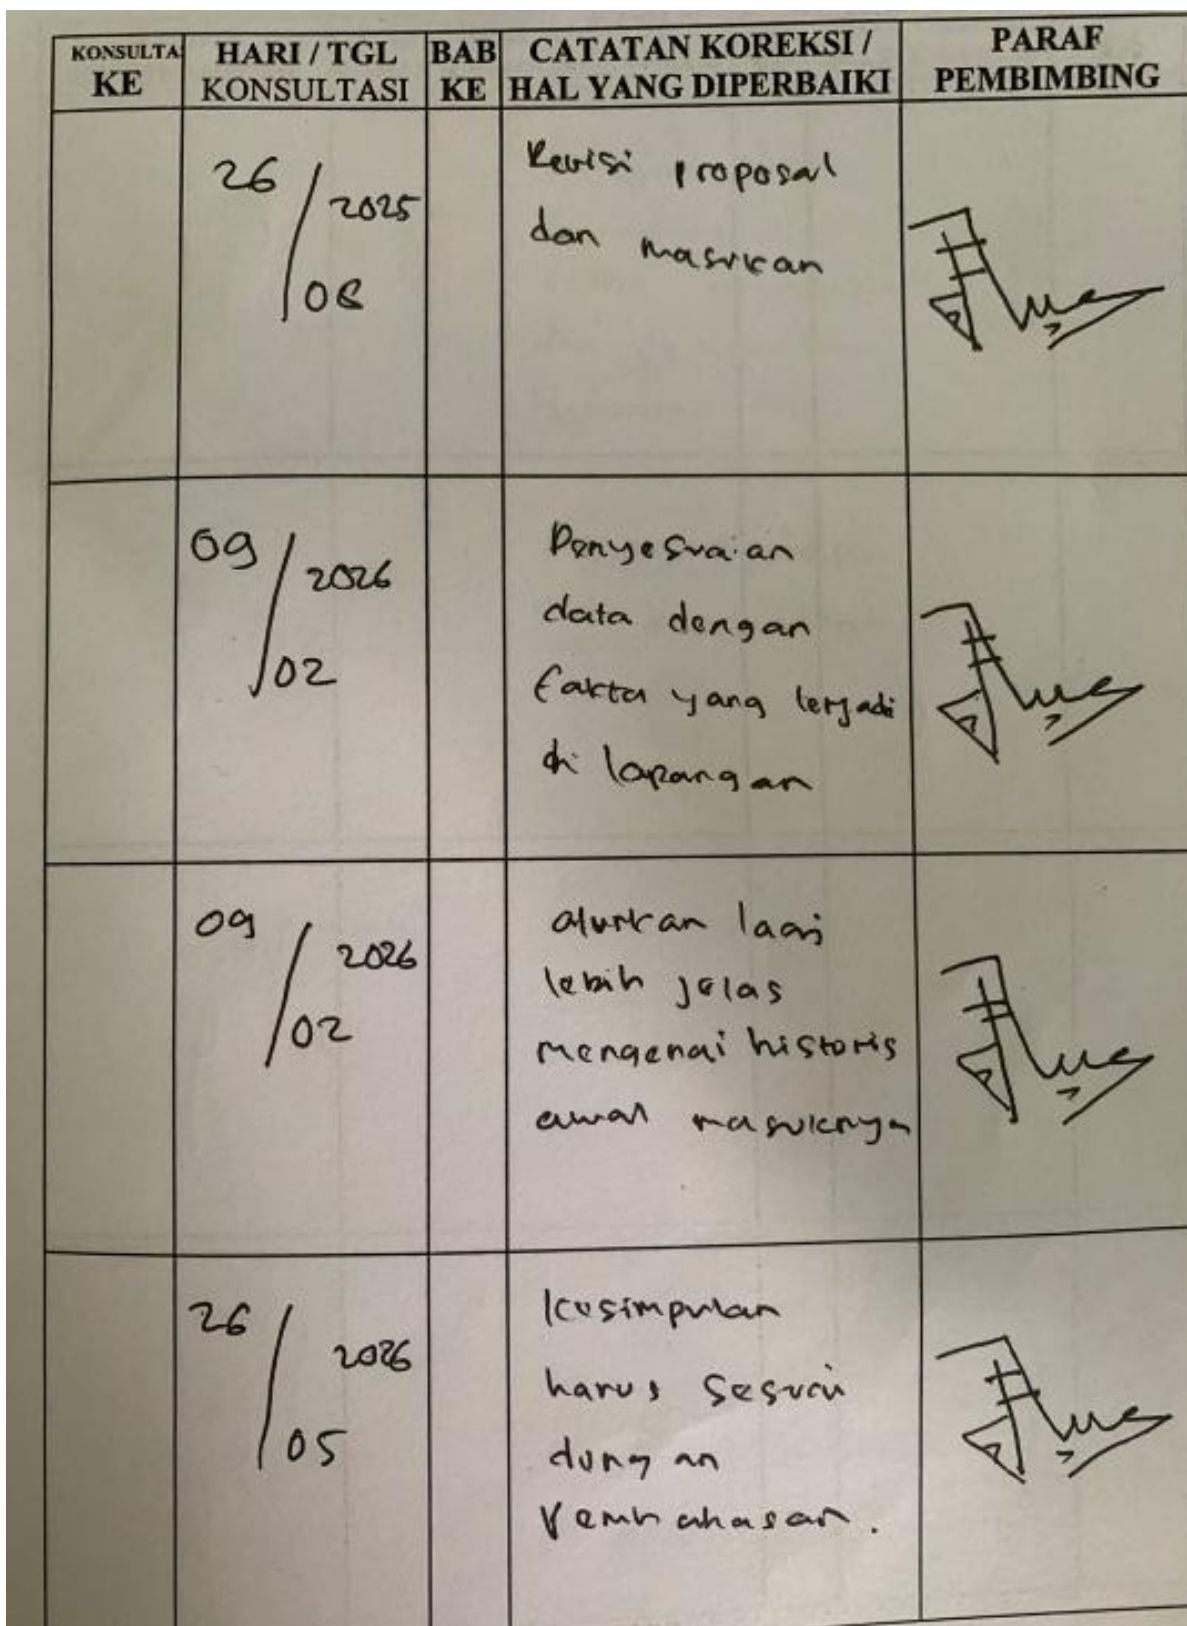 KONSULTA HARI / TGL BAB CATATAN KOREKSI / PARAF
KE KONSULTASI KE HAL YANG DIPERBAIKI PEMBIMBING
26 / 2025
08
Revisi proposal
dan masukan
09 / 2026
02
Penyesuaian
data dengan
fakta yang terjadi
di lapangan
09 / 2026
02
alurkan lagi
lebih jelas
mengenai historis
awal masuknya
26 / 2026
05
Kesimpulan
harus sesuai
dengan
Pembahasan.